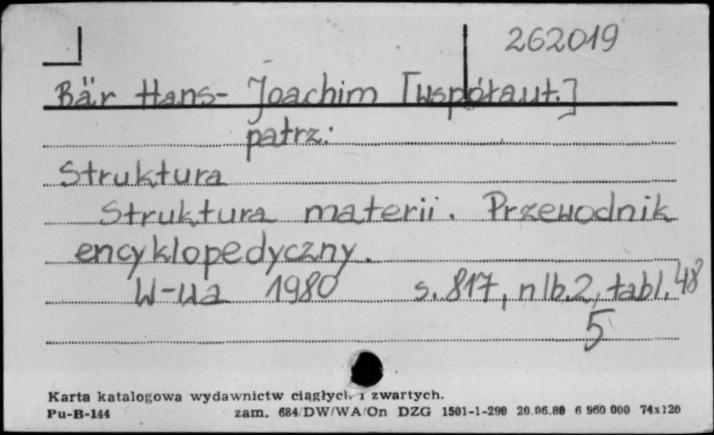 262019
Bär Hans-Joachim [współaut.]
patrz:
Struktura
Struktura materii. Przewodnik
encyklopedyczny.
W-wa 1980 s. 817, nlb.2, tabl. 48
5
Karta katalogowa wydawnictw ciągłych i zwartych.
Pu-B-144 zam. 684/DW/WA/On DZG 1501-1-290 20.06.80 6 960 000 74x120